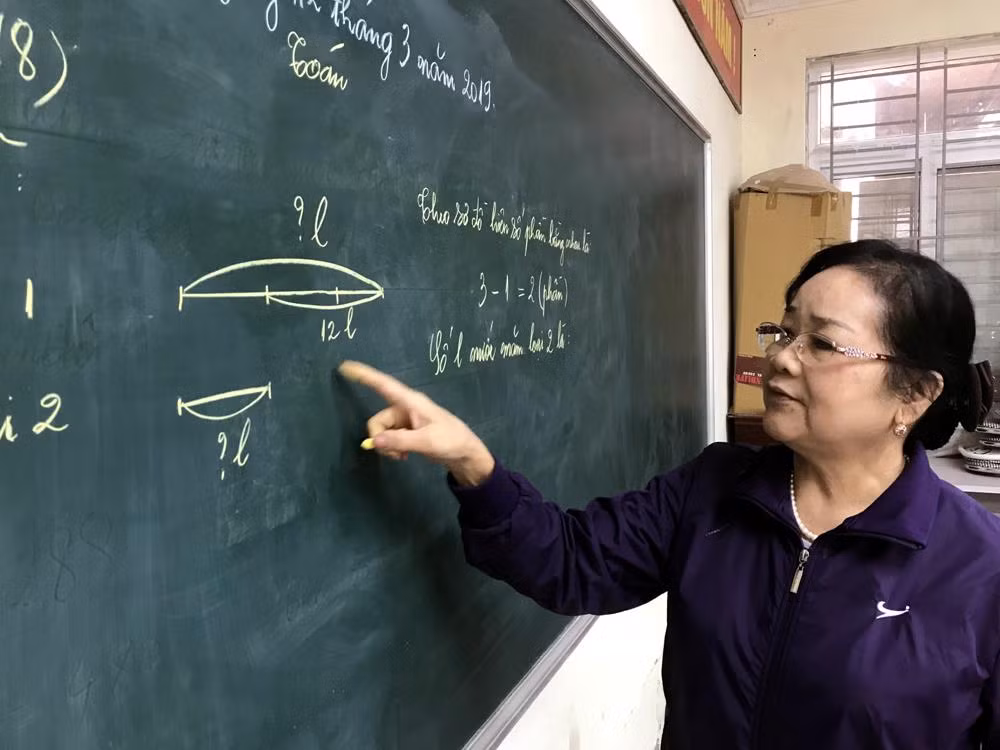 tháng 3 năm 2019.
Toán
8)
? l
Theo sơ đồ hiệu số phần bằng nhau là
1
3 - 1 = 2 (phần)
12 l
Số l nước mắm loại 2 là :
i 2
? l